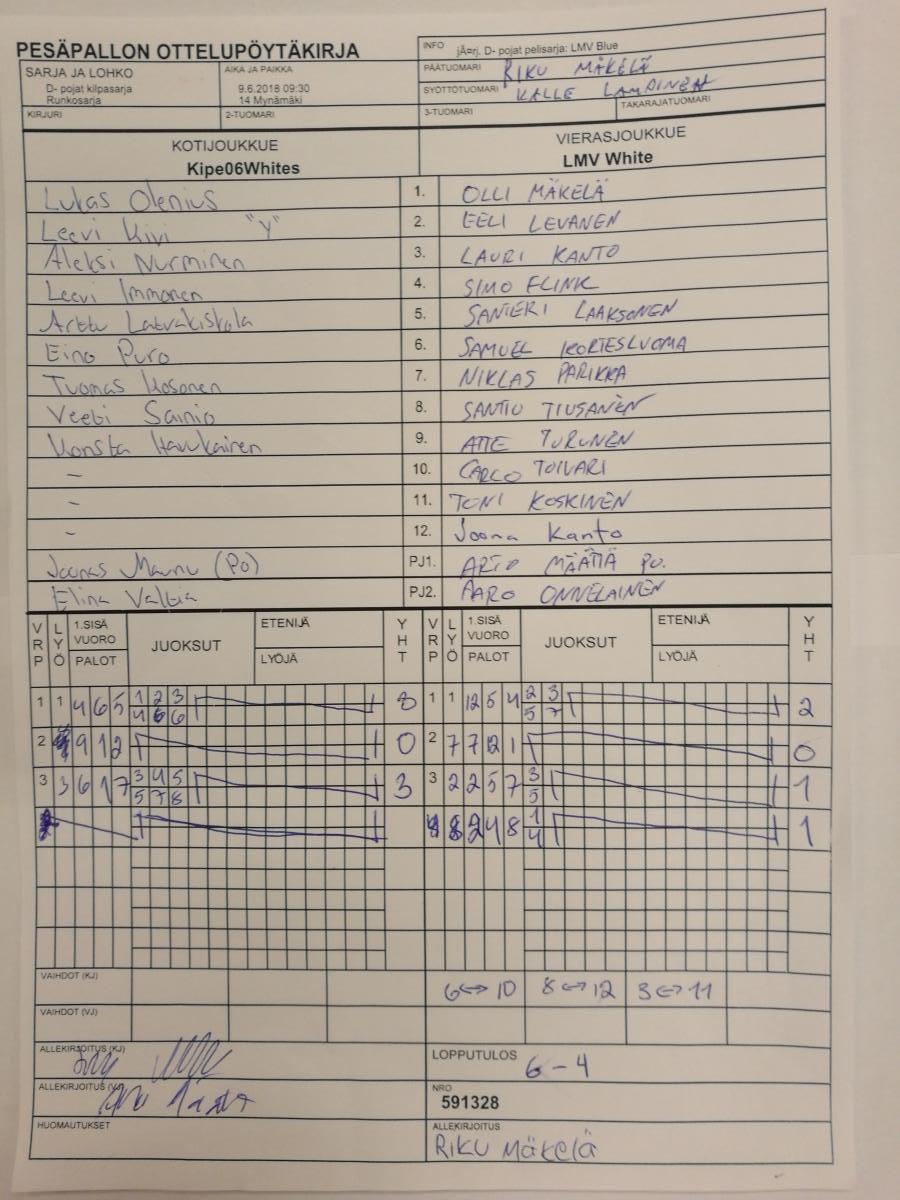 PESÄPALLON OTTELUPÖYTÄKIRJA
INFO jÃ¤rj. D- pojat pelisarja: LMV Blue
PÄÄTUOMARI RIKU MÄKELÄ
SYÖTTÖTUOMARI KALLE LAMPINEN
3-TUOMARI TAKARAJATUOMARI
SARJA JA LOHKO
D- pojat kilpasarja
Runkosarja
AIKA JA PAIKKA
9.6.2018 09:30
14 Mynämäki
KIRJURI 2-TUOMARI
KOTIJOUKKUE VIERASJOUKKUE
Kipe06Whites LMV White
Lukas Olenius 1. OLLI MÄKELÄ
Leevi Kivi "Y" 2. EELI LEVANEN
Aleksi Nurminen 3. LAURI KANTO
Leevi Immonen 4. SIMO FLINK
Arttu Latvakiskola 5. SANTERI LAAKSONEN
Eino Puro 6. SAMUEL KORTESLUOMA
Tuomas Kosonen 7. NIKLAS PARIKKA
Veeti Sainio 8. SANTTU TIUSANEN
Konsta Haukkainen 9. ATTE TURUNEN
- 10. CARLO TOIVARI
- 11. TONI KOSKINEN
- 12. Joona Kanto
Joonas Maunu (PO) PJ1. ARTO MÄÄTTÄ PO.
Elina Valtia PJ2. AARO ONNELAINEN
VRP LYÖ 1.SISÄ VUORO PALOT JUOKSUT ETENIJÄ LYÖJÄ YHT VRP LYÖ 1.SISÄ VUORO PALOT JUOKSUT ETENIJÄ LYÖJÄ YHT
1 1 4 6 5 1 2 3 3 1 1 12 5 4 2 3 2
4 6 6 5 7
2 9 1 2 0 2 7 7 12 1 0
3 3 6 1 7 3 4 5 3 3 2 2 5 7 3 1
5 7 8 5
8 2 4 8 1 1
4
VAIHDOT (KJ) 6↔10 8↔12 3↔11
VAIHDOT (VJ)
ALLEKIRJOITUS (KJ) LOPPUTULOS 6-4
ALLEKIRJOITUS (VJ) NRO
591328
HUOMAUTUKSET ALLEKIRJOITUS
RIKU MÄKELÄ